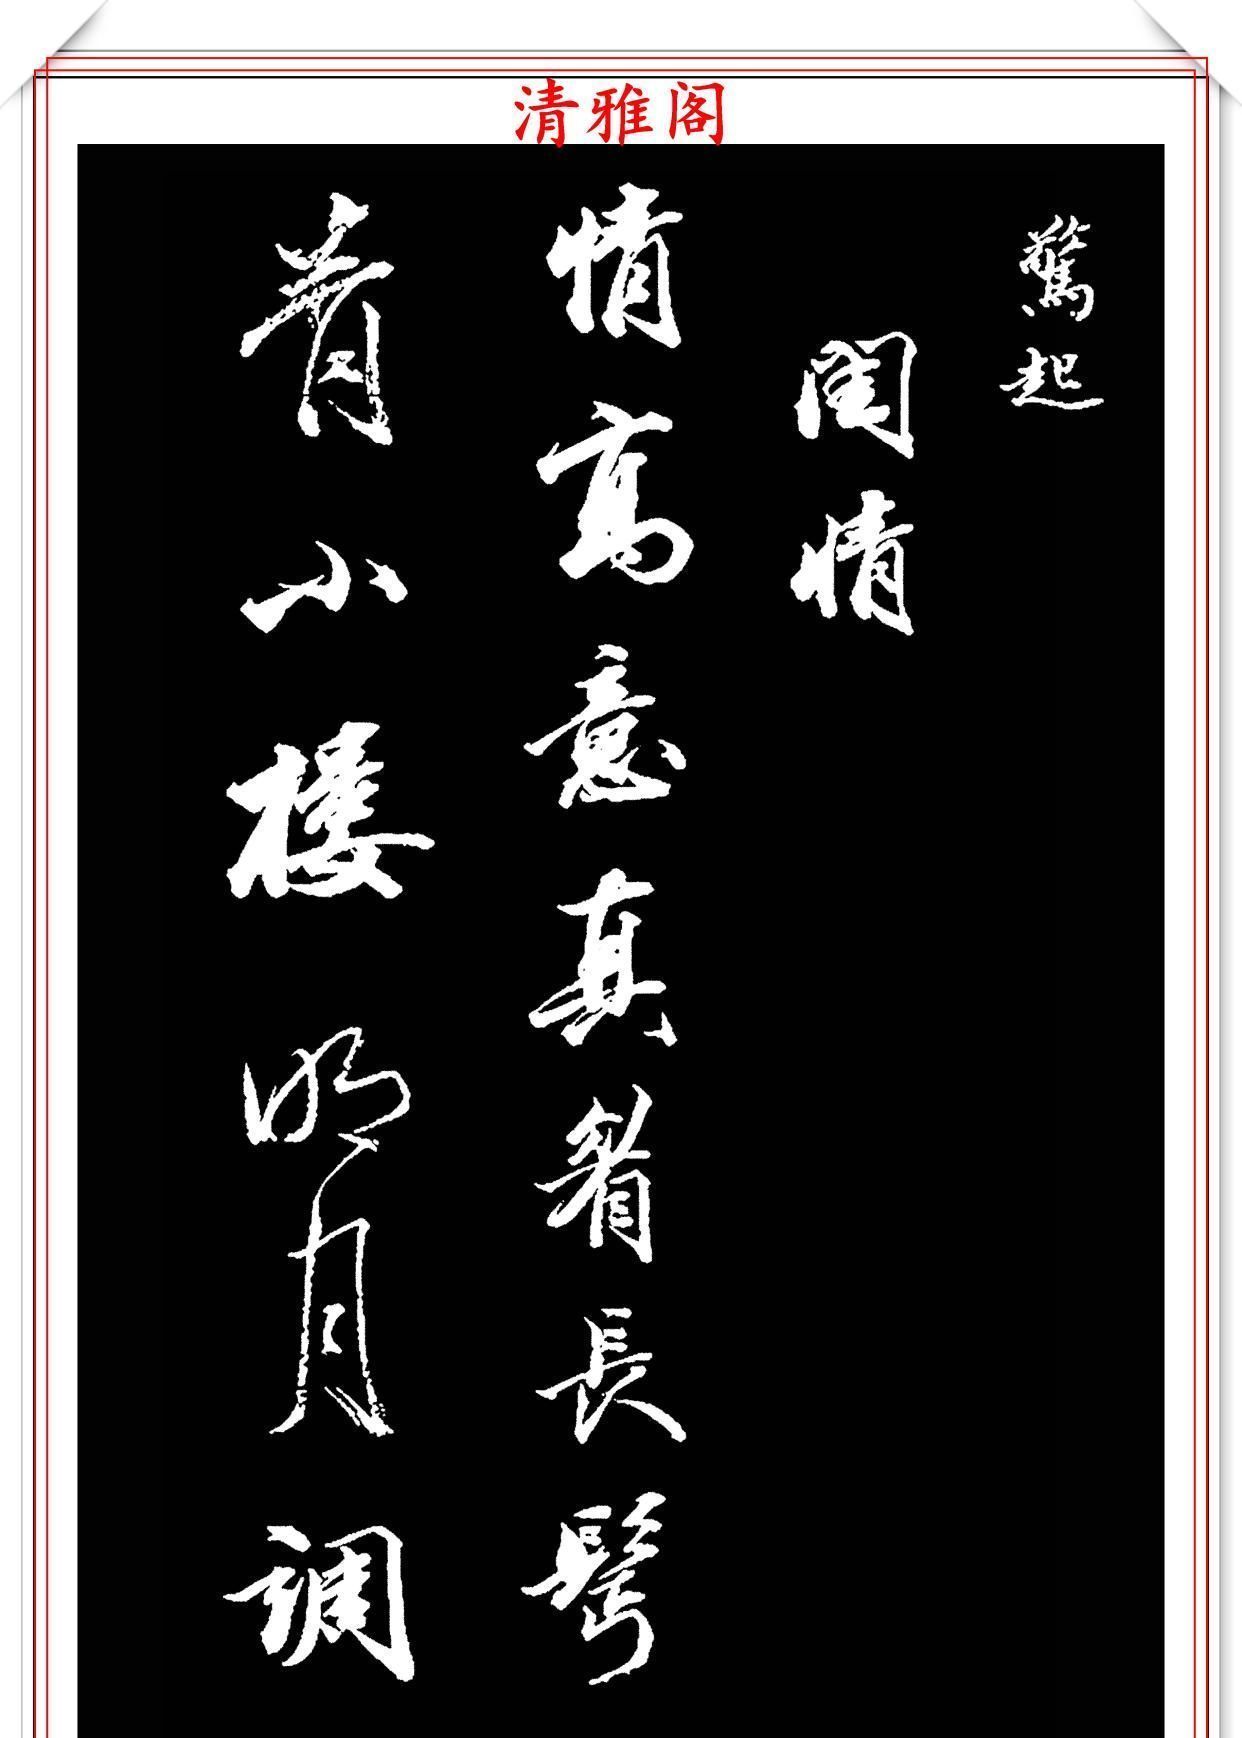 清雅阁
驚起
閨情
情高意真着長鬢
青小楼明月調